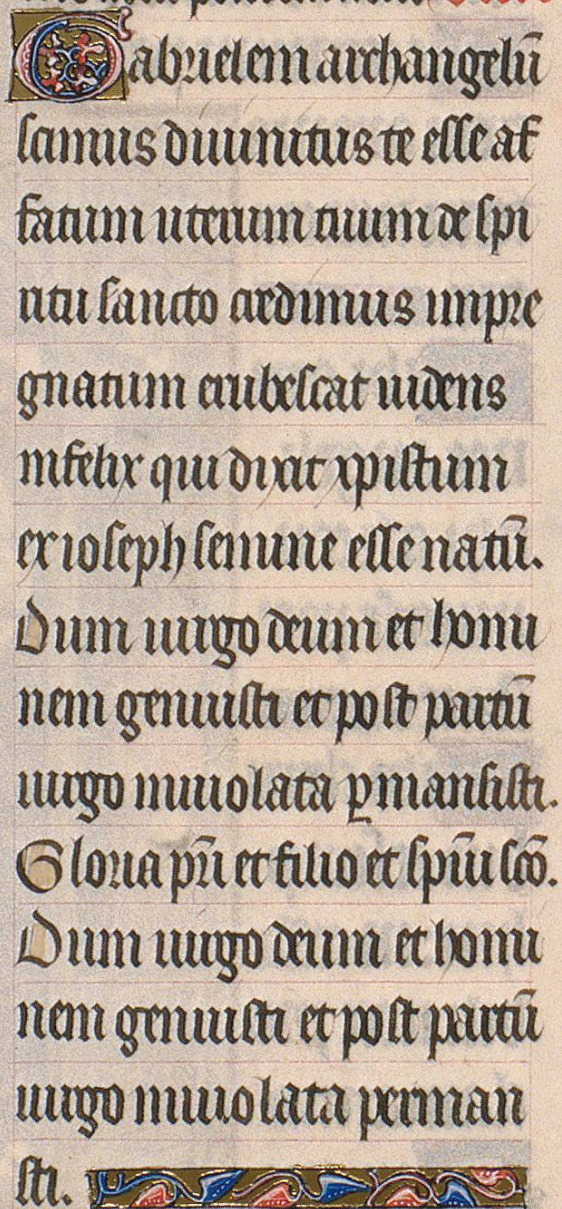 Gabrielem archangelū
scimus diuinitus te esse af
fatum uterum tuum de spi
ritu sancto credimus impre
gnatum erubescat uidens
infelix qui dixit xpistum
ex ioseph semine esse natū.
Dum uirgo deum et homi
nem genuisti et post partū
uirgo inuiolata ꝑmansisti.
Gloria pr̄i et filio et spūi scō.
Dum uirgo deum et homi
nem genuisti et post partū
uirgo inuiolata perman
sti.